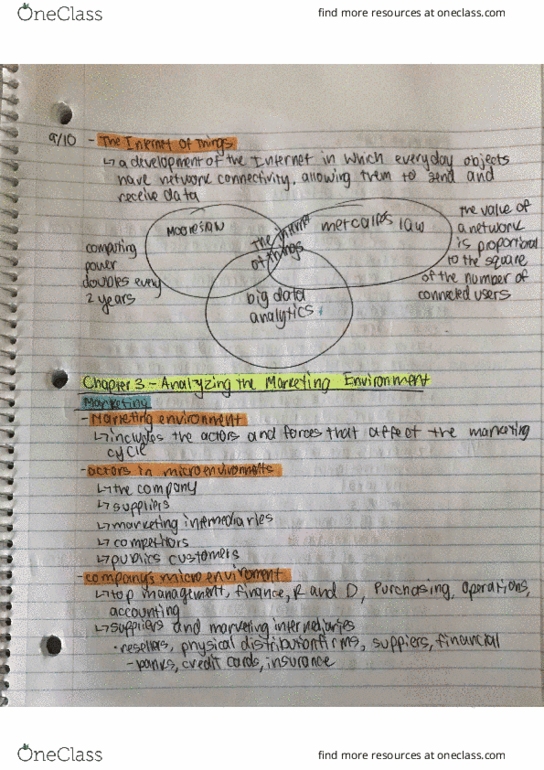 OneClass
find more resources at oneclass.com
9/10 - The Internet of Things
↳ a development of the Internet in which everyday objects
have network connectivity, allowing them to send and
receive data
Moore's law
the internet
of things
metcalfes law
the value of
a network
is proportional
to the square
of the number of
connected users
computing
power
doubles every
2 years
big data
analytics
Chapter 3 - Analyzing the Marketing Environment
Marketing
- Marketing environment
↳ includes the actors and forces that affect the marketing
cycle
- actors in microenvironments
↳ the company
↳ suppliers
↳ marketing intermediaries
↳ competitors
↳ publics customers
- company's micro enviroment
↳ top management, finance, R and D, Purchasing, operations,
accounting
↳ suppliers and marketing intermediaries
• resellers, physical distribution firms, suppiers, financial
- banks, credit cards, insurance
OneClass
find more resources at oneclass.com